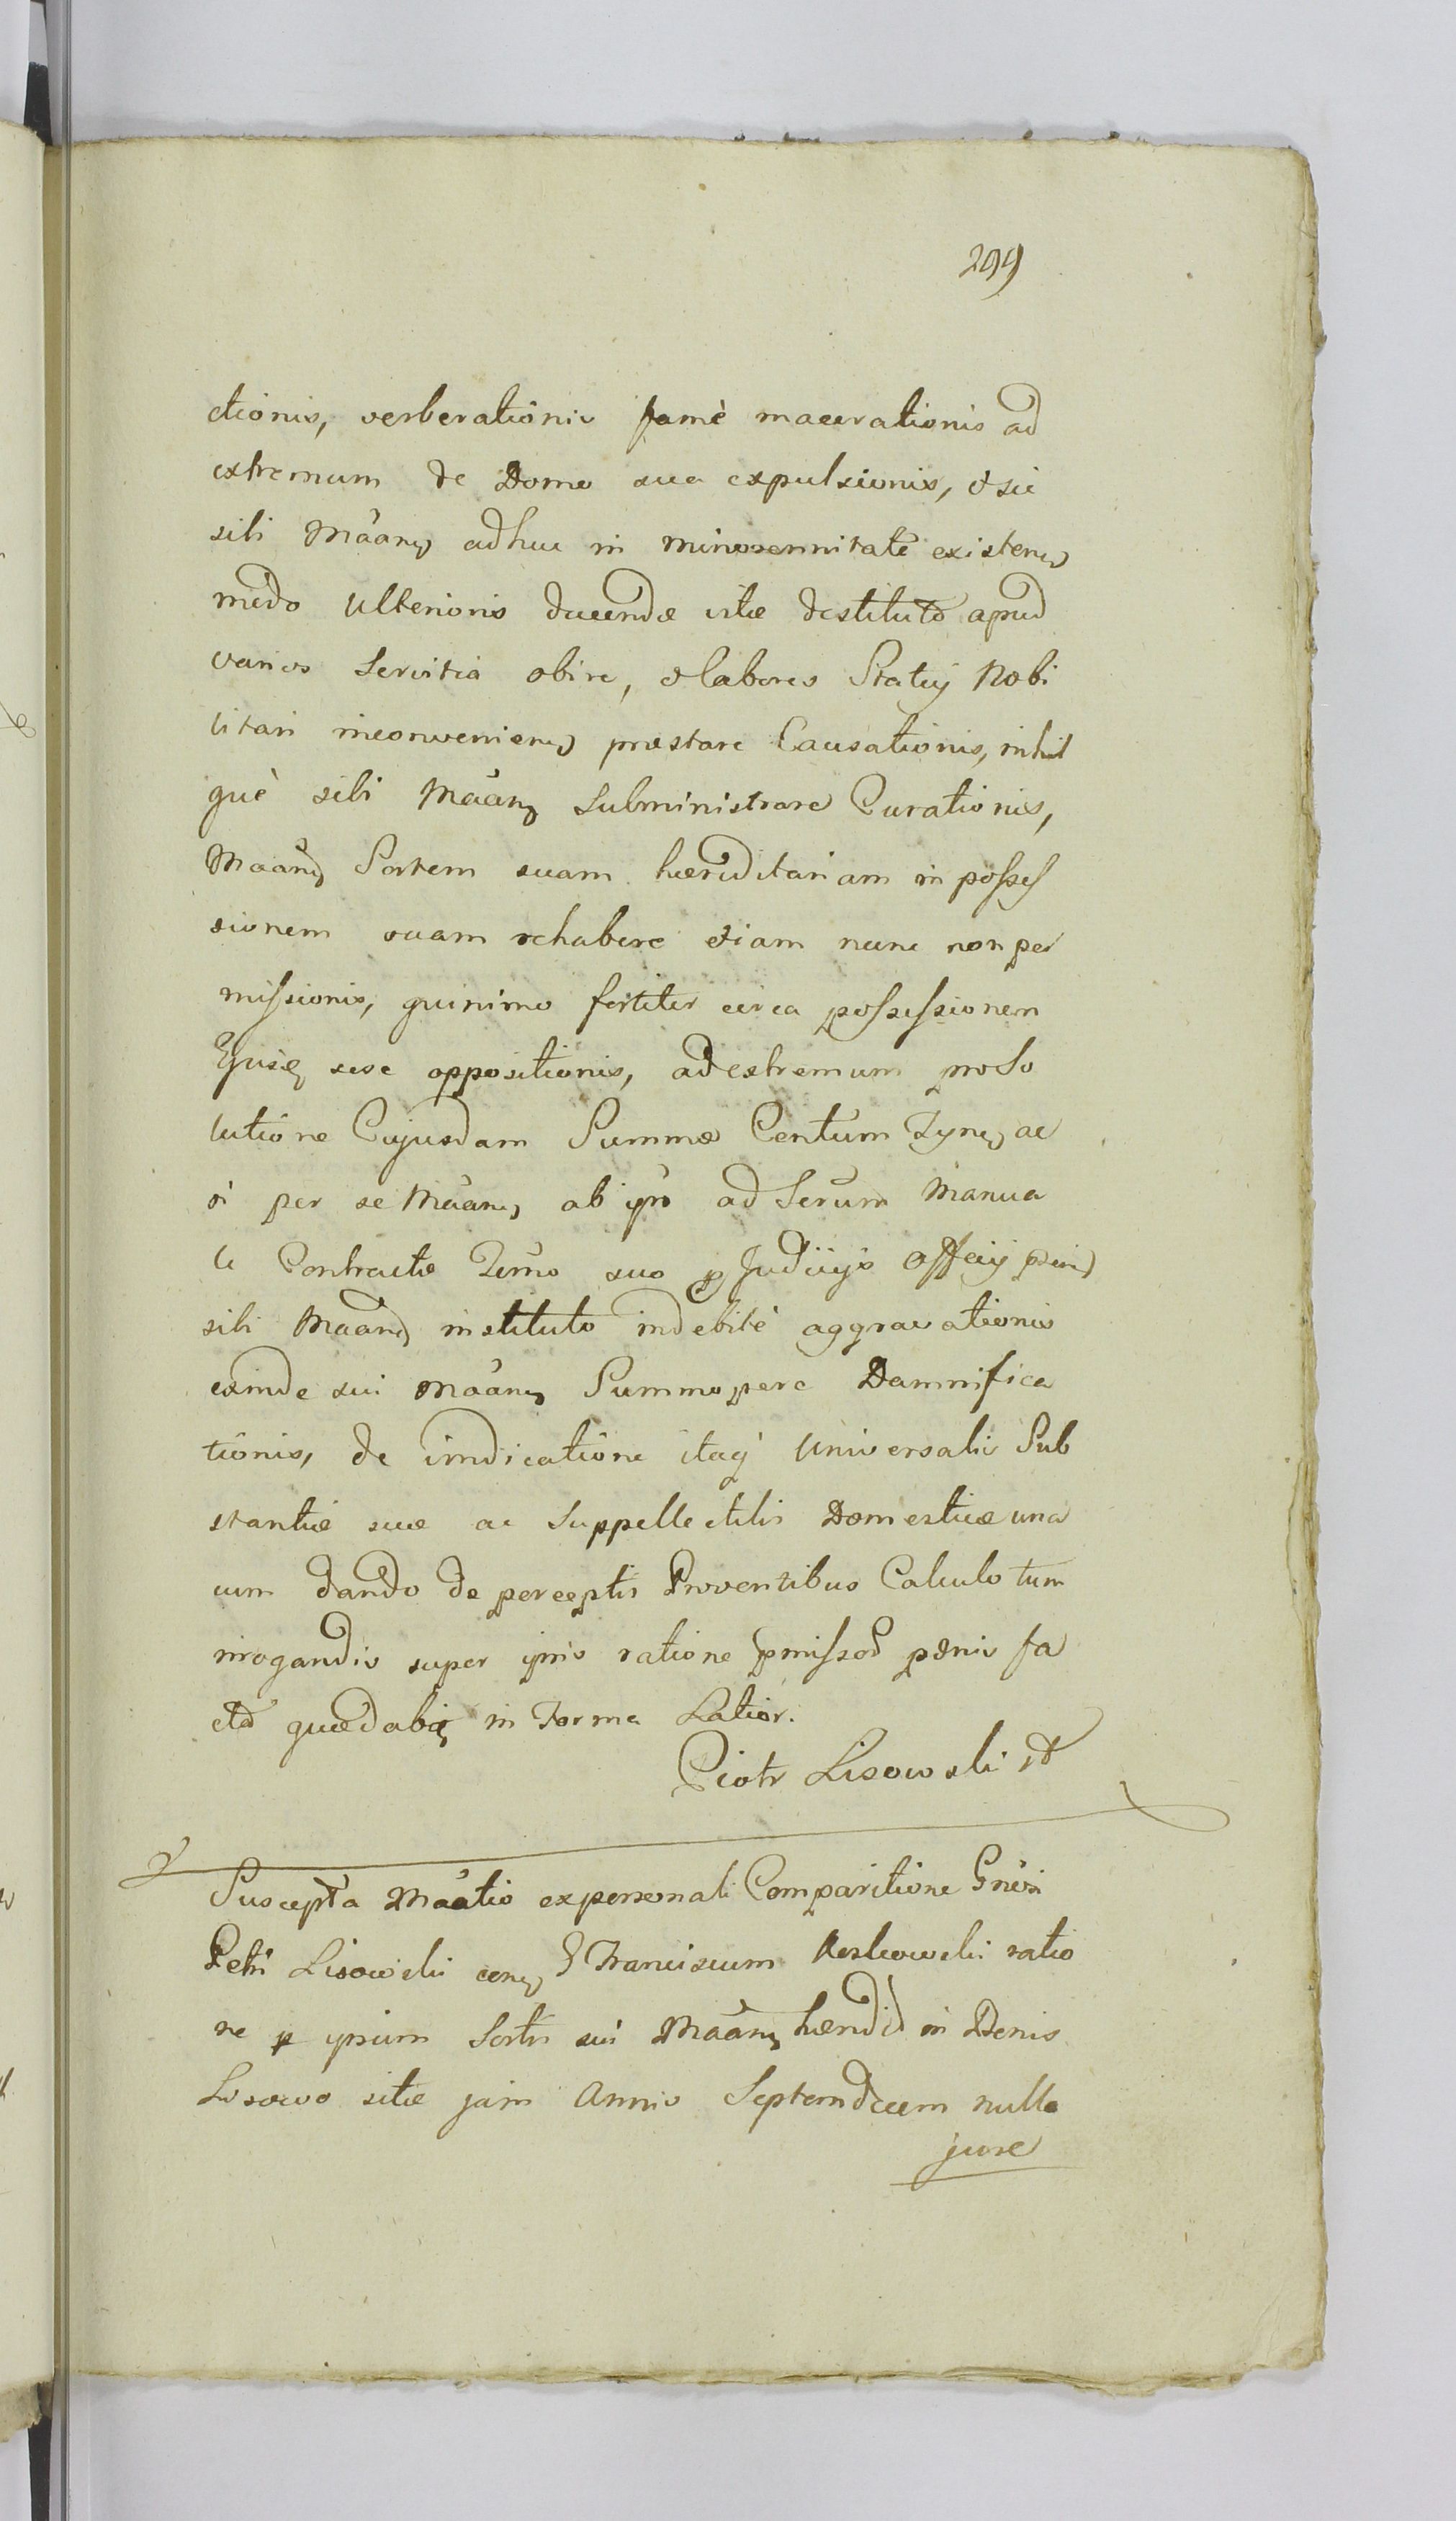 299
ctionis, verberationis famè macerationis ad
extremum de Domo sua expulsionis, & sic
sibi Mãanti adhuc in minorennitate existenti
mõdo ulterioris ducendæ vitæ destituto apud
varios Servitia obire, & labores Statuj Nobi
litari inconvenientes præstare Causationis, nihil
què sibi Mãanti Subministrare Curationis,
Mãanti Sortem suam hæreditariam in posses
sionem suam rehabere etiam nunc non per
missionis, quinimo fortiter circa possessionem
Ejusq sese oppositionis, ad extremum pro so
lutione Cujusdam Summæ Centum Tyn ac
si per se Mãan ab ipso ad Scrum Manua
le Contractæ Termo suo p Judicijs Officij
sibi Mãan instituto indebitè aggravationis
exinde sui Mãan Summopere Damnifica
tionis, de vindicatione itaq Universalis Sub
stantiæ suæ ac Suppellectilis Domesticæ una
cum dando de perceptis Proventibus Calculo tum
irrogandis super ipsis ratione pmissod pœnis fa
ctâ in Forma Latiori.
Piotr Lisowski
Suscepta Mãatio ex personali Comparitione Gnosi
Petri Lisowski con G Franciscum ratio
ne p ipsum Sortis sui Mãan hæred in Bonis
Lisowo sitæ jam Annis Septemdecem nullo
jure